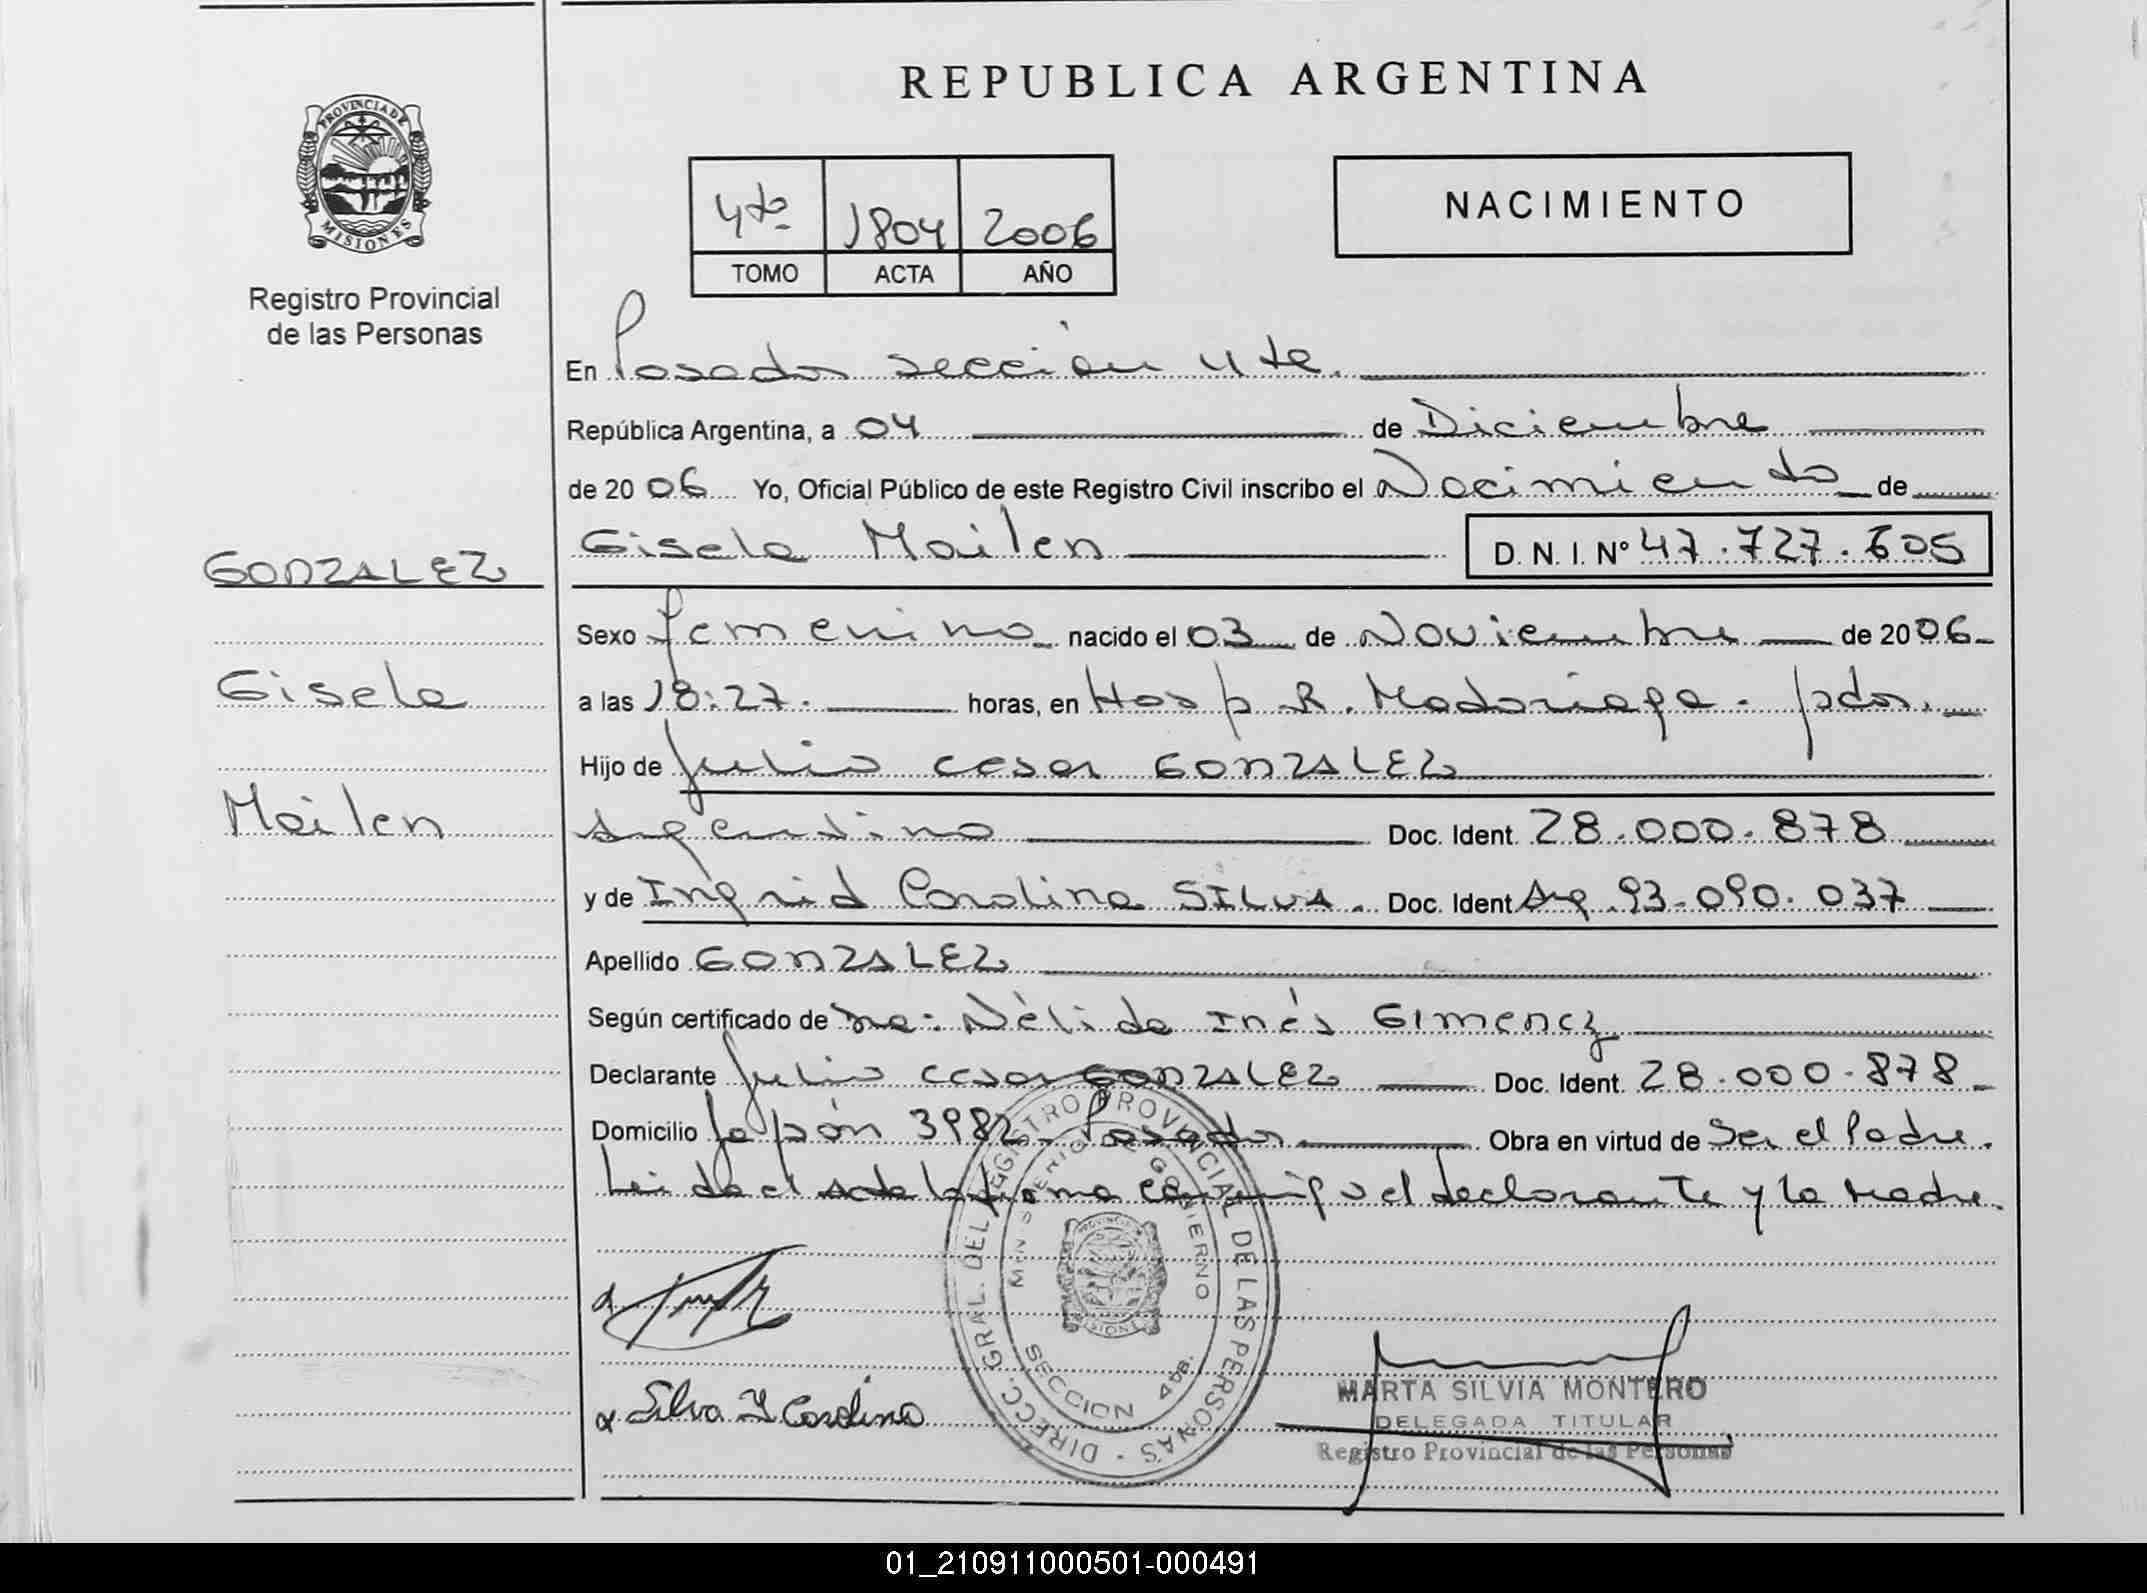 REPUBLICA ARGENTINA
PROVINCIA DE
MISIONES
Registro Provincial
de las Personas
4to 1804 2006
TOMO ACTA AÑO
NACIMIENTO
En Posadas sección 4ta.
República Argentina, a 04 de Diciembre
de 20 06 Yo, Oficial Público de este Registro Civil inscribo el Nacimiento de
Gisela Mailen D. N. I. Nº 47.727.605
GONZALEZ
Gisela
Mailen
Sexo femenino nacido el 03 de Noviembre de 20 06
a las 18:27. horas, en Hosp R. Madariaga. pdas.
Hijo de Julio Cesar GONZALEZ
Argentino Doc. Ident. 28.000.878
y de Ingrid Carolina SILVA. Doc. Ident Arg. 93.090.037
Apellido GONZALEZ
Según certificado de Dra: Nélida Inés GIMENEZ
Declarante Julio Cesar GONZALEZ Doc. Ident. 28.000.878
Domicilio Japón 3982 Posadas Obra en virtud de Ser el Padre.
Leida el acta la firma conmigo el declarante y la Madre.
DIRECC. GRAL. DEL REGISTRO PROVINCIAL DE LAS PERSONAS
MINISTERIO DE GOBIERNO
SECCION 4
Silva I Carolina
MARTA SILVIA MONTERO
DELEGADA TITULAR
Registro Provincial de las Personas
01_210911000501-000491